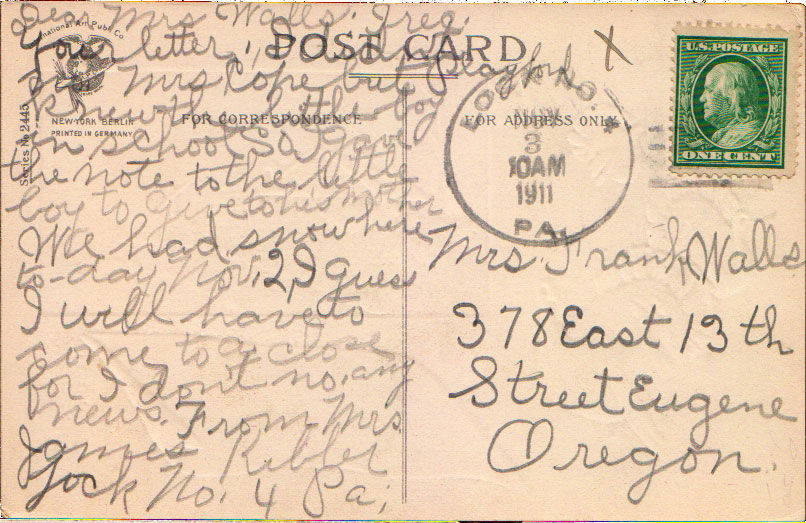 Dear Mrs Walls. I rec.
Your letter,
Mrs Cope, but Clayford
knew the little boy
in school So I gave
the note to the little
boy to give to his mother
We had snow here
to-day Nov, 2, I guess
I will have to
come to a close
for I don't no, any
news. From Mrs.
James Kibler
Lock No. 4 Pa;
International Art Publ. Co.
NEW YORK BERLIN
PRINTED IN GERMANY
Series No. 2445
POST CARD
FOR CORRESPONDENCE
FOR ADDRESS ONLY
X
LOCK NO. 4
NOV
3
10AM
1911
PA.
U.S. POSTAGE
ONE CENT
Mrs. Frank Walls
378 East 13th
Street Eugene
Oregon.